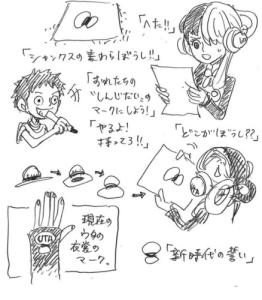 「へた!!」
「シャンクスの麦わらぼうし!!」
「おれたちの
"しんじだい"の
マークにしよう!」
「やるよ!
持ってろ!!」
「どこがぼうし??」
UTA
現在の
ウタの
衣装の
マーク。
「新時代の誓い」